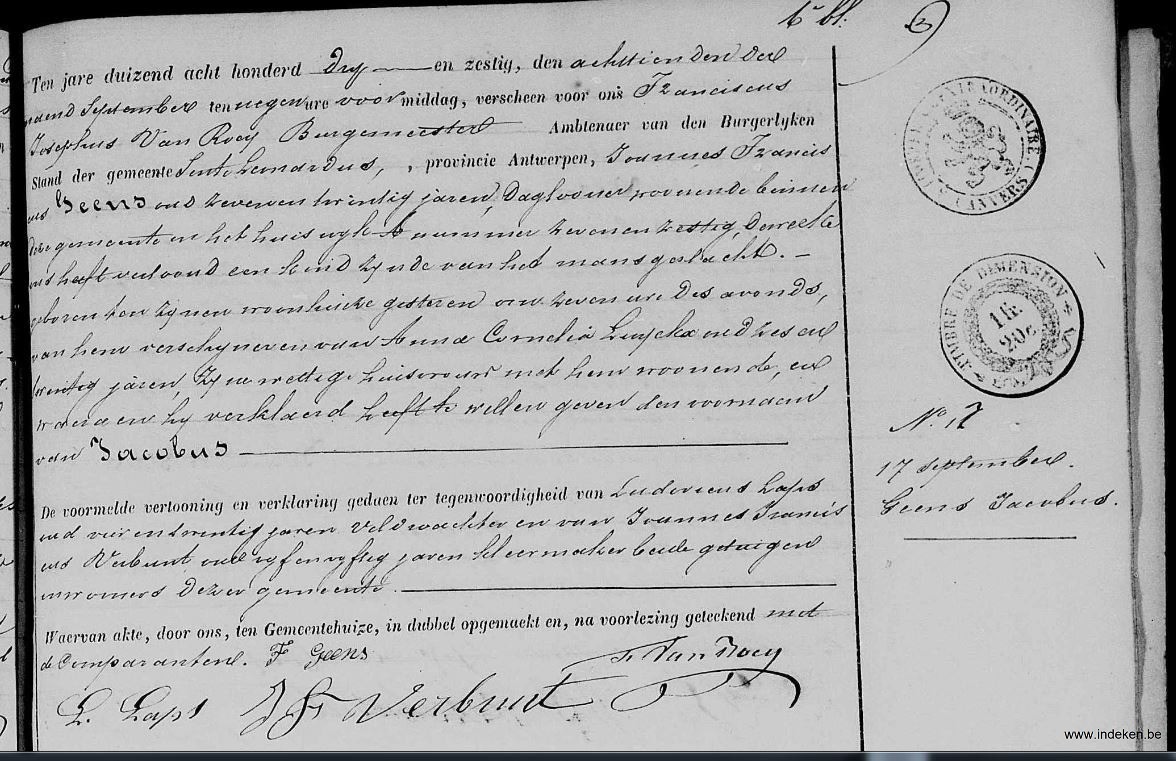 6e bl. 3
Ten jare duizend acht honderd Dry en zestig, den achttienden der
maend September ten negen ure voor middag, verscheen voor ons Franciscus
Josephus Van Roey Burgemeester Ambtenaer van den Burgerlyken
Stand der gemeente Sint Leonardus, , provincie Antwerpen, Joannes Francis
cus Geens oud zevenentwintig jaren, Daglooner, woonende binnen
deze gemeente in het huis wyk A nummer zevenenzestig, Dewelke
ons heeft vertoond een kind zynde van het mansgeslacht. –
geboren ten zynen woonhuize gisteren om zeven ure des avonds,
van hem verschyner en van Anna Cornelia Luyckx oud zes en
twintig jaren, zyne wettige huisvrouw met hem woonende, en
waeraen hy verklaerd heeft te willen geven den voornaem
van Jacobus
De voormelde vertooning en verklaring gedaen ter tegenwoordigheid van Ludovicus Laps
oud vierentwintig jaren Veldwachter en van Joannes Francis
cus Verbunt oud vyfenvyftig jaren kleermaker beide getuigen
inwoners dezer gemeente.
Waervan akte, door ons, ten Gemeentehuize, in dubbel opgemaekt en, na voorlezing geteekend met
de Comparanten. F Geens
F. Van Roey
L. Laps J F Verbunt
TIMBRE EXTRAORDINAIRE (ANVERS)
TIMBRE DE DIMENSION
1 fr.
20 c.
No. 17
17 September.
Geens Jacobus.
www.indeken.be